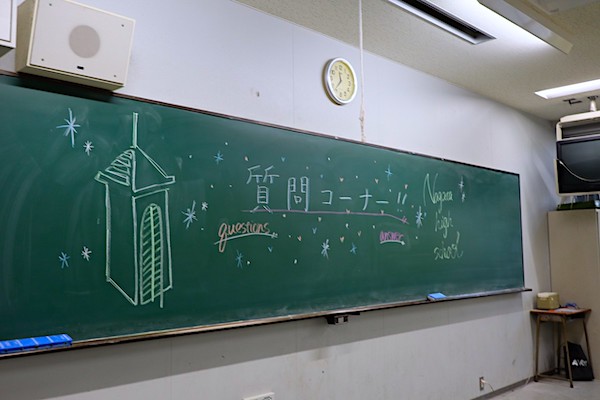 質問コーナー!!
questions
answer
Nagara
High
school